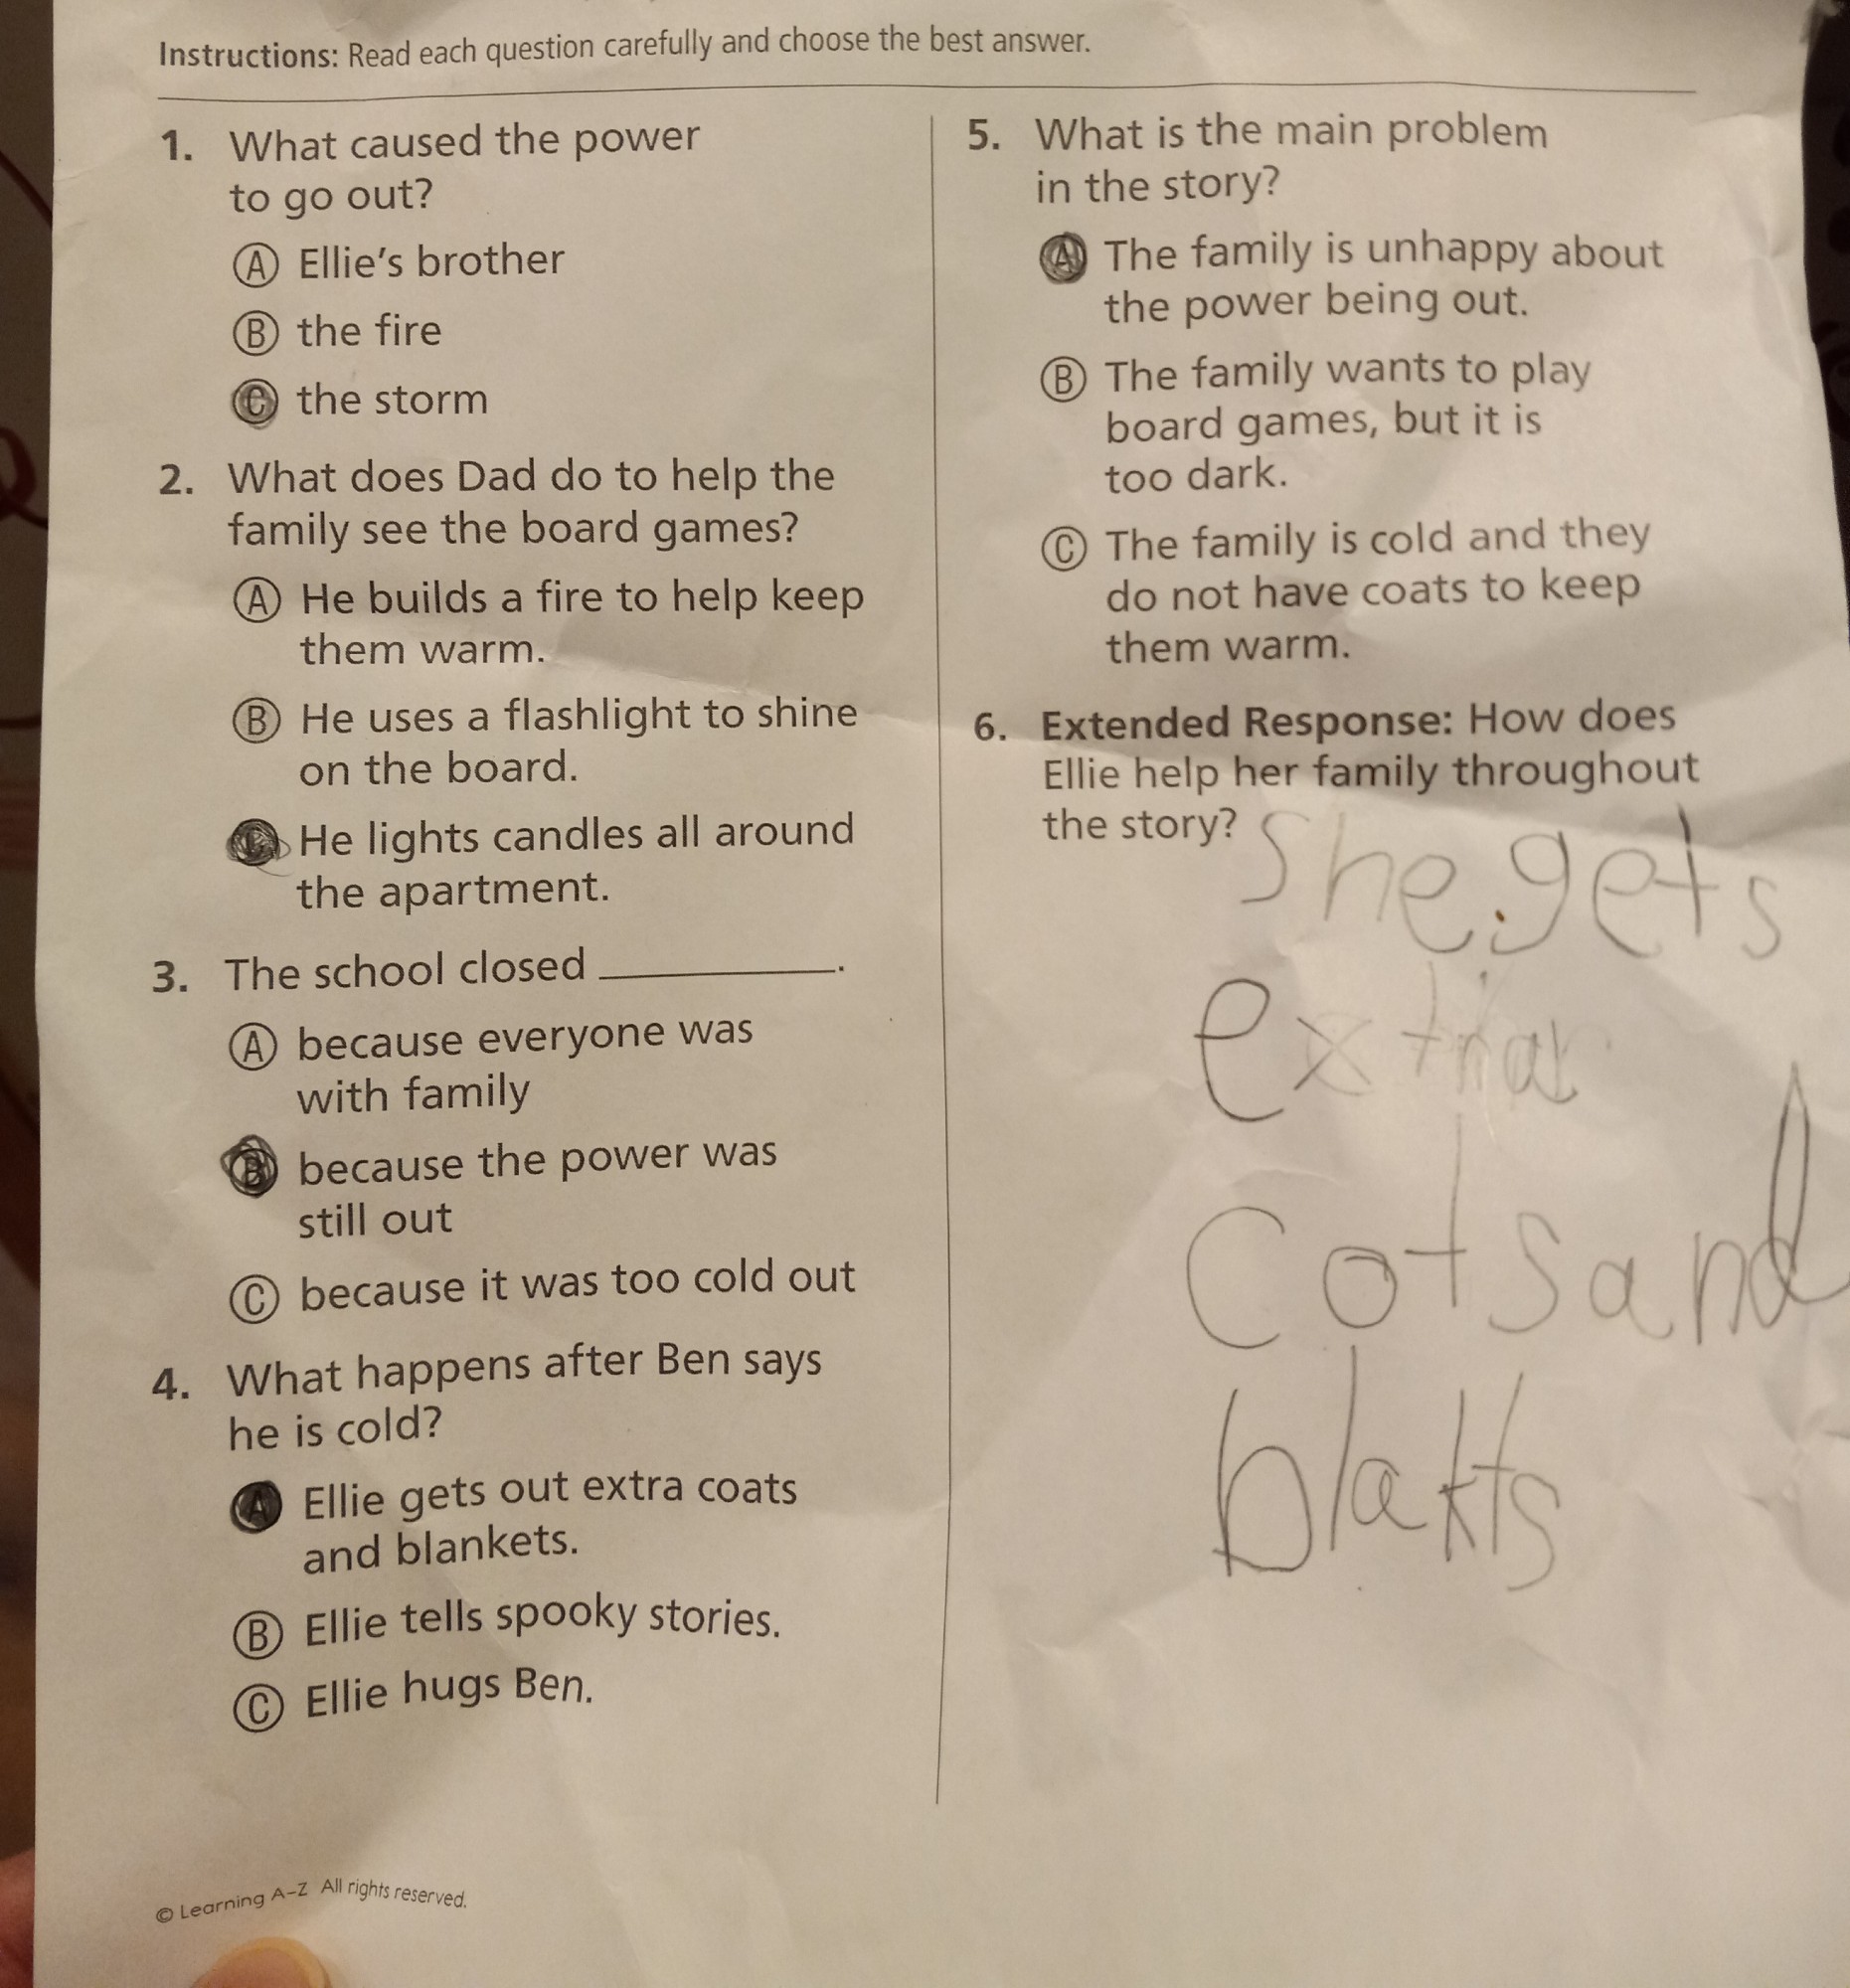 Instructions: Read each question carefully and choose the best answer.
1. What caused the power
to go out?
A Ellie's brother
B the fire
C the storm
2. What does Dad do to help the
family see the board games?
A He builds a fire to help keep
them warm.
B He uses a flashlight to shine
on the board.
C He lights candles all around
the apartment.
3. The school closed ________.
A because everyone was
with family
B because the power was
still out
C because it was too cold out
4. What happens after Ben says
he is cold?
A Ellie gets out extra coats
and blankets.
B Ellie tells spooky stories.
C Ellie hugs Ben.
5. What is the main problem
in the story?
A The family is unhappy about
the power being out.
B The family wants to play
board games, but it is
too dark.
C The family is cold and they
do not have coats to keep
them warm.
6. Extended Response: How does
Ellie help her family throughout
the story?
She gets
extra
cots and
blakts
© Learning A–Z All rights reserved.